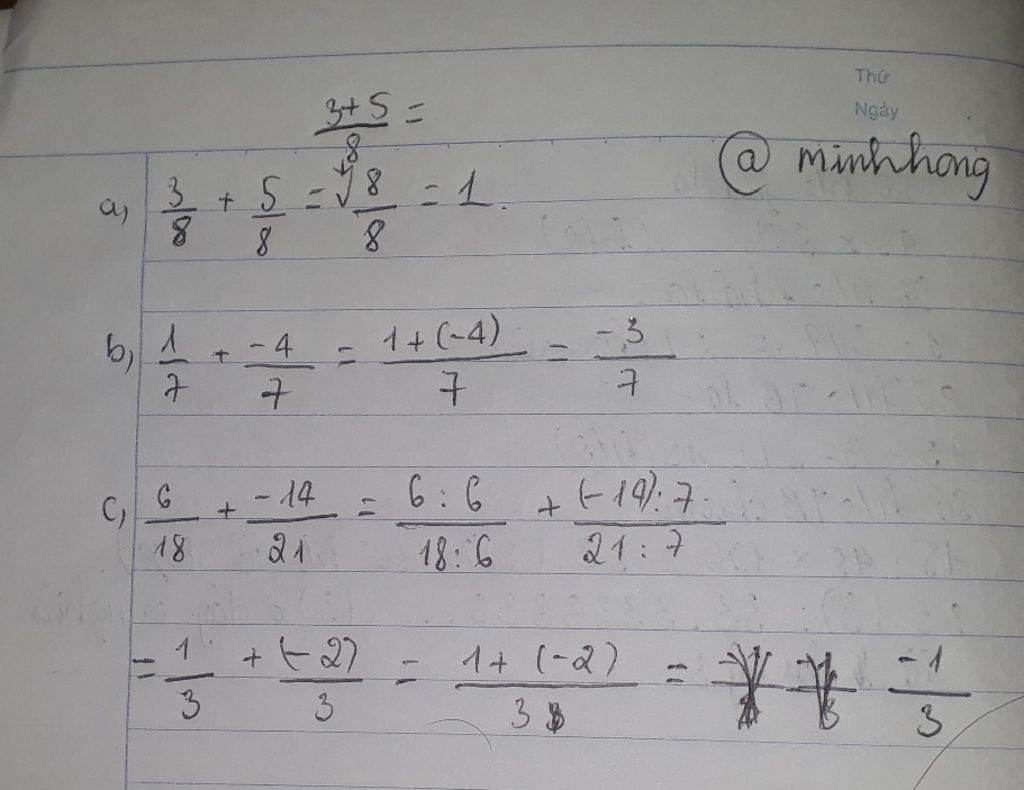 Thứ
Ngày
(3+5)/8 =
@ minhhong
a, 3/8 + 5/8 = 8/8 = 1.
b, 1/7 + -4/7 = (1+(-4))/7 = -3/7
c, 6/18 + -14/21 = (6:6)/(18:6) + ((-14):7)/(21:7)
= 1/3 + (-2)/3 = (1+(-2))/3 = -1/3